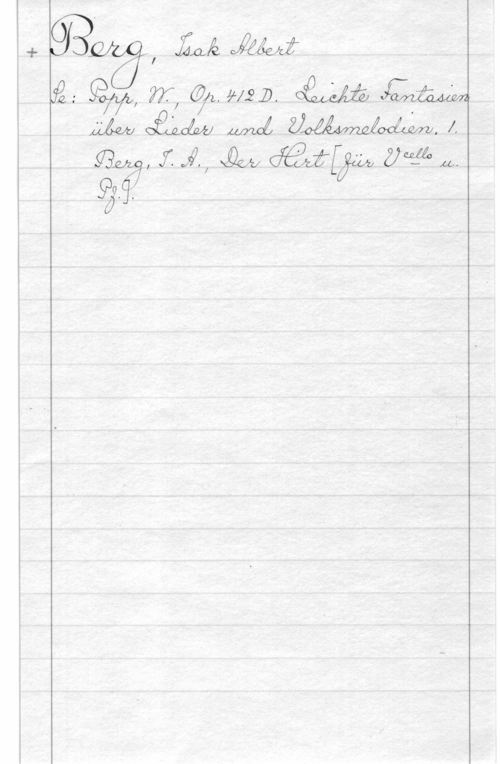 + Berg, Isak Albert
Se: Popp, W., Op. 412 D. Leichte Fantasien
über Lieder und Volksmelodien. 1.
Berg, I. A., Der Hirt [für Vcello u.
Pf.].